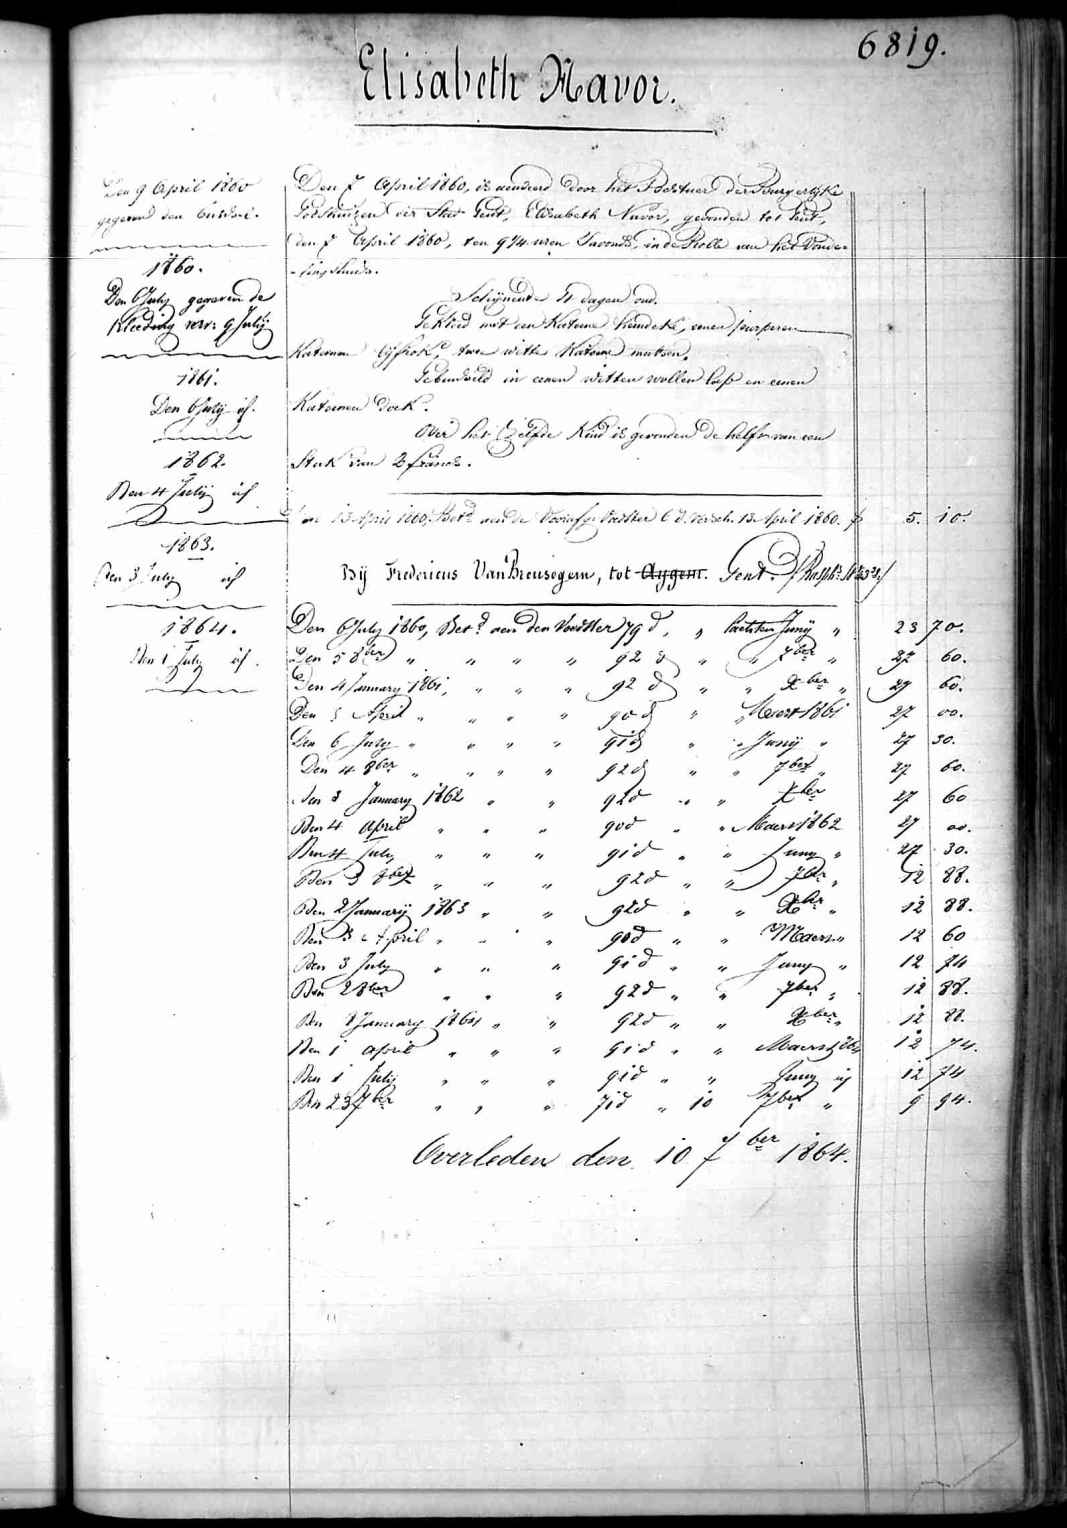 6819.
Elisabeth Navor.
Den 9 April 1860
gegeven den
1860.
Den 6 July gegeven de
Kleeding verv: 9 July
1861.
Den 6 July id.
1862.
Den 4 July id
1863.
Den 3 July id
1864.
Den 1 July id.
Den 7 April 1860, is aenveerd door het Bestuer der Burgerlyke
Godshuizen der Stad Gent, Elisabeth Navor, gevonden tot Gent,
den 7 April 1860, ten 9 1/4 uren 's avonds, in de Rolle van het Vonde-
lingshuis.
Schynende 11 dagen oud.
Gekleed met een Katoene hemdeke, eenen purperen
Katoenen lyfrok, twee witte Katoene mutsen,
Gebundseld in eenen witten wollen lap en eenen
Katoenen doek.
Over het zelfde Kind is gevonden de helft van een
Stuk van 2 francs.
Den 13 April 1860, Bet.d aen de Voedster 6 d. versch. 13 April 1860. f 5. 10.
Bij Fredericus Van Breusegem, tot Aygem. Gent.
Den 6 July 1860, Bet.d aen den Voedster 79 d, " laetsten Junij " 23 70.
Den 5 8ber " " " " 92 d " " 7ber " 27 60.
Den 4 January 1861, " " " 92 d " " Xber " 27 60.
Den 5 April " " " " 90 d " " Maert 1861 27 00.
Den 6 July " " " " 91 d " " Junij " 27 30.
Den 4 8ber " " " " 92 d " " 7ber " 27 60.
Den 3 January 1862 " " 92 d " " Xber 27 60
Den 4 April " " " 90 d " " Maert 1862 27 00.
Den 4 July " " " 91 d " " Juny " 27 30.
Den 3 8ber " " " 92 d " " 7ber " 12 88.
Den 2 Januarij 1863 " " 92 d " " Xber " 12 88.
Den 3 April " " " 90 d " " Maert " 12 60
Den 3 July " " " 91 d " " Juny " 12 74
Den 2 8ber " " " 92 d " " 7ber " 12 88.
Den 8 January 1864 " " 92 d " " Xber " 12 88.
Den 1 April " " " 91 d " " Maert 12 74.
Den 1 July " " " 91 d " " Juny id 12 74
Den 23 7ber " " " 71 d " 10 7ber " 9 94.
Overleden den 10 7ber 1864.